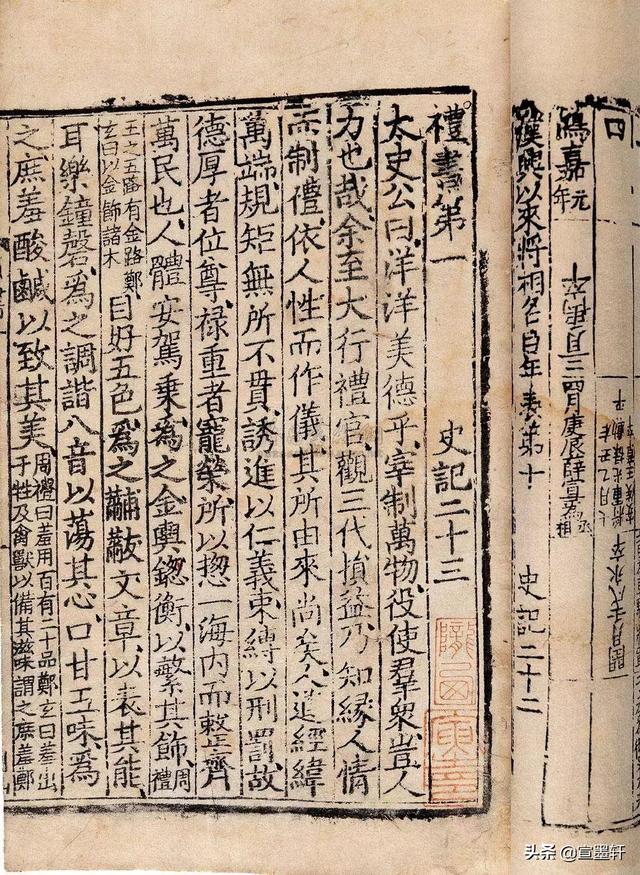 鴻嘉元年
四月庚辰薛宣爲丞相
漢興以來將相名臣年表第十 史記二十二
禮書第一 史記二十三
太史公曰洋洋美德乎宰制萬物役使羣衆豈人
力也哉余至大行禮官觀三代損益乃知緣人情
而制禮依人性而作儀其所由來尚矣人道經緯
萬端規矩無所不貫誘進以仁義束縛以刑罰故
德厚者位尊祿重者寵榮所以揔一海内而整齊
萬民也人體安駕乘爲之金輿鍯衡以繁其飾周禮
王之五路有金路鄭玄曰以金飾諸末目好五色爲之黼黻文章以表其能
耳樂鐘磬爲之調諧八音以蕩其心口甘五味爲
之庶羞酸鹹以致其美周禮曰羞用百有二十品鄭玄曰羞出于牲及禽獸以備其滋味謂之庶羞鄭
头条 @宣墨轩